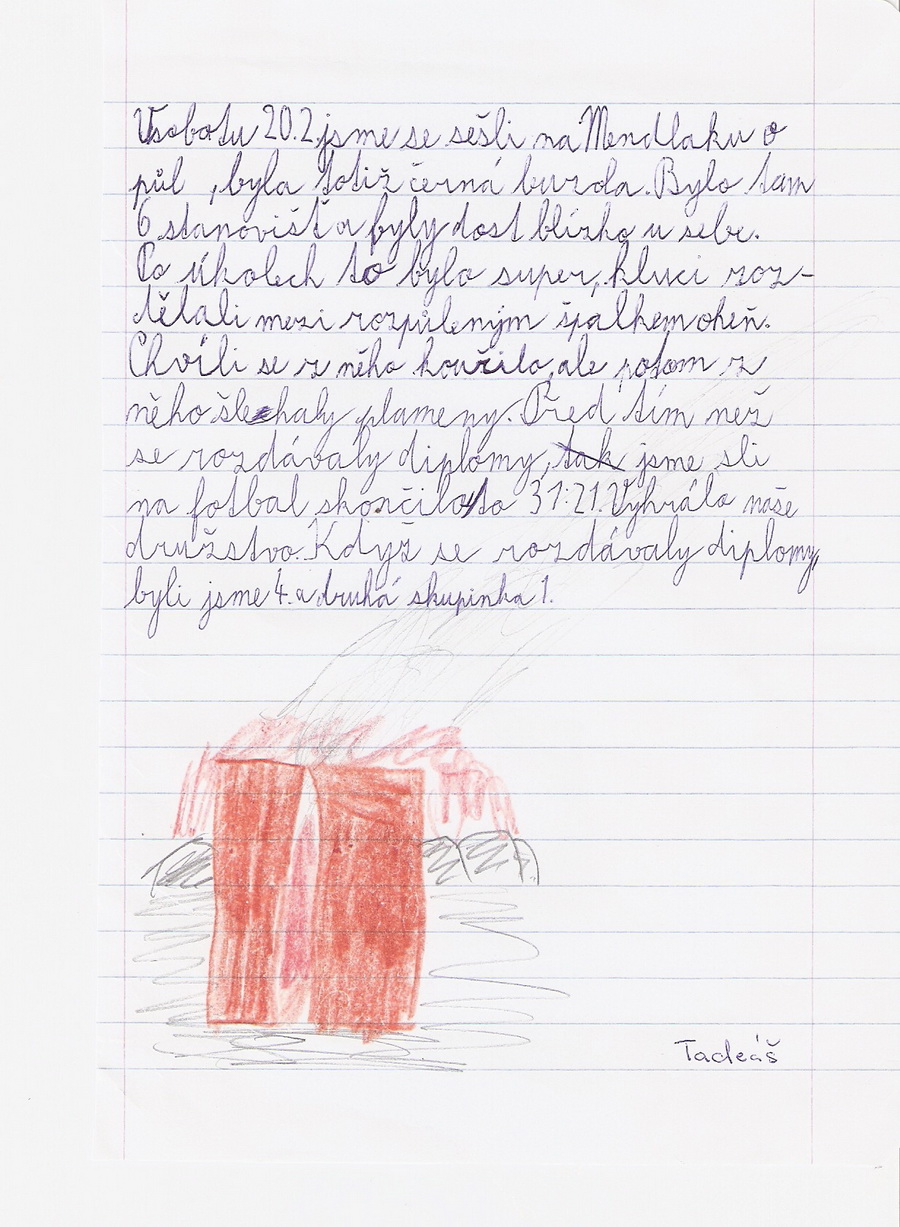 V sobotu 20.2. jsme se sešli na Mendlaku o
půl , byla totiž černá burda. Bylo tam
6 stanovišť a byly dost blízko u sebe.
Po úkolech to bylo super, kluci roz-
dělali mezi rozpůleným špalkem oheň.
Chvíli se z něho kouřilo, ale potom z
něho šlehaly plameny. Před tím než
se rozdávaly diplomy, tak jsme sli
na fotbal skončilo to 31:21. Vyhrálo naše
družstvo. Když se rozdávaly diplomy,
byli jsme 4. a druhá skupinka 1.
Tadeáš